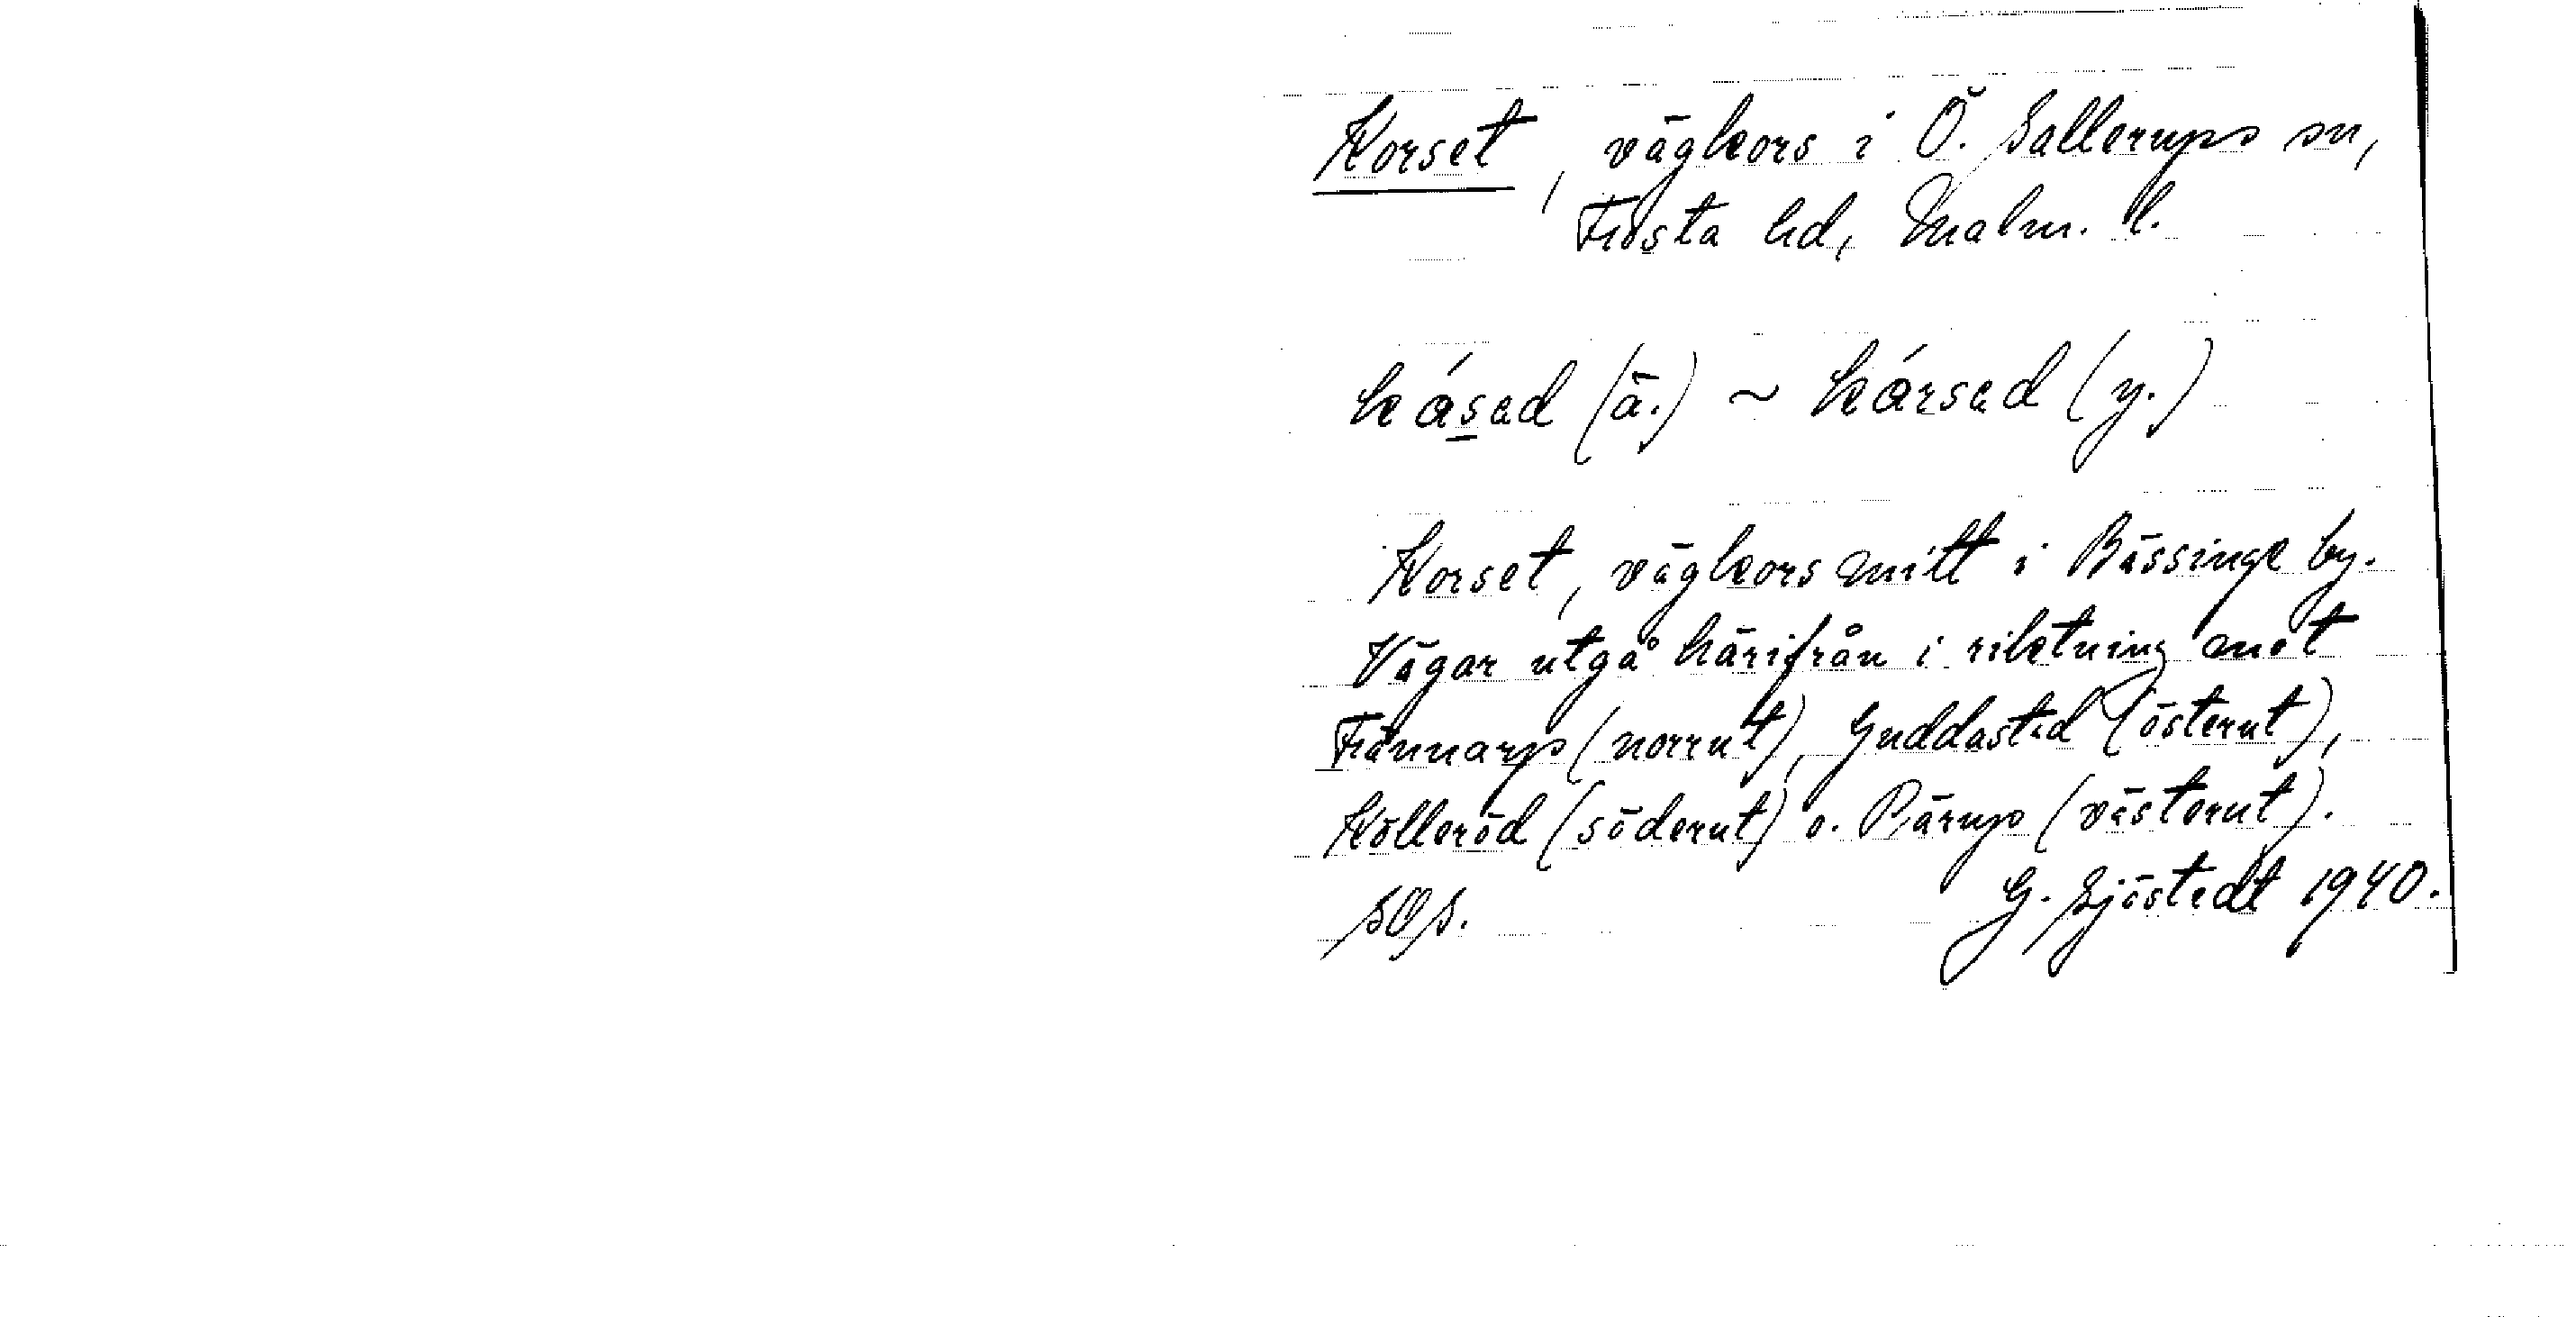 Korset, vägkors i Ö. Sallerups sn,
Frosta hd, Malm. l.
kásad (ä.) ~ kársad (y.)
Korset, vägkors mitt i Bässinge by.
Vägar utgå härifrån i riktning mot
Frännarp (norrut), Guddastad (österut),
Kölleröd (söderut) o. Pärup (västerut).
SOS. G. Sjöstedt 1940.